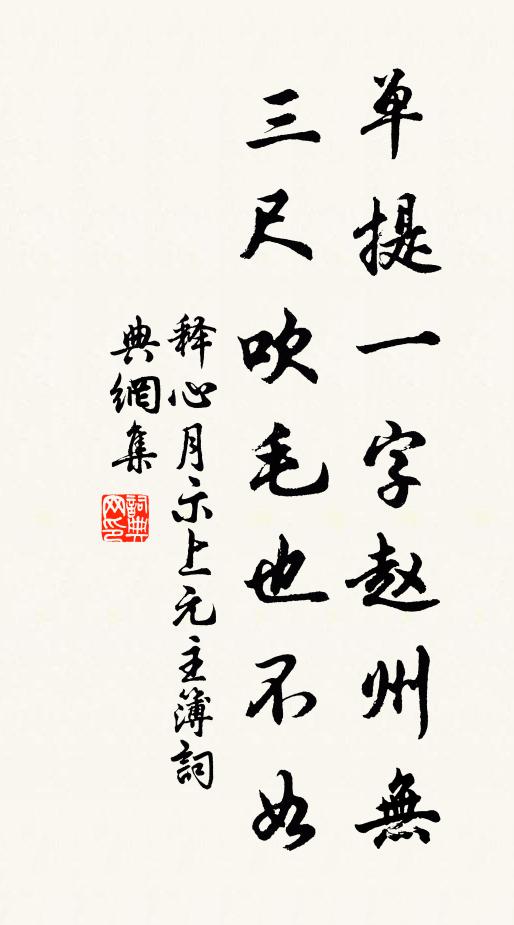 单提一字赵州無
三尺吹毛也不如
释心月示上元主簿詞
典網集
詞典网印